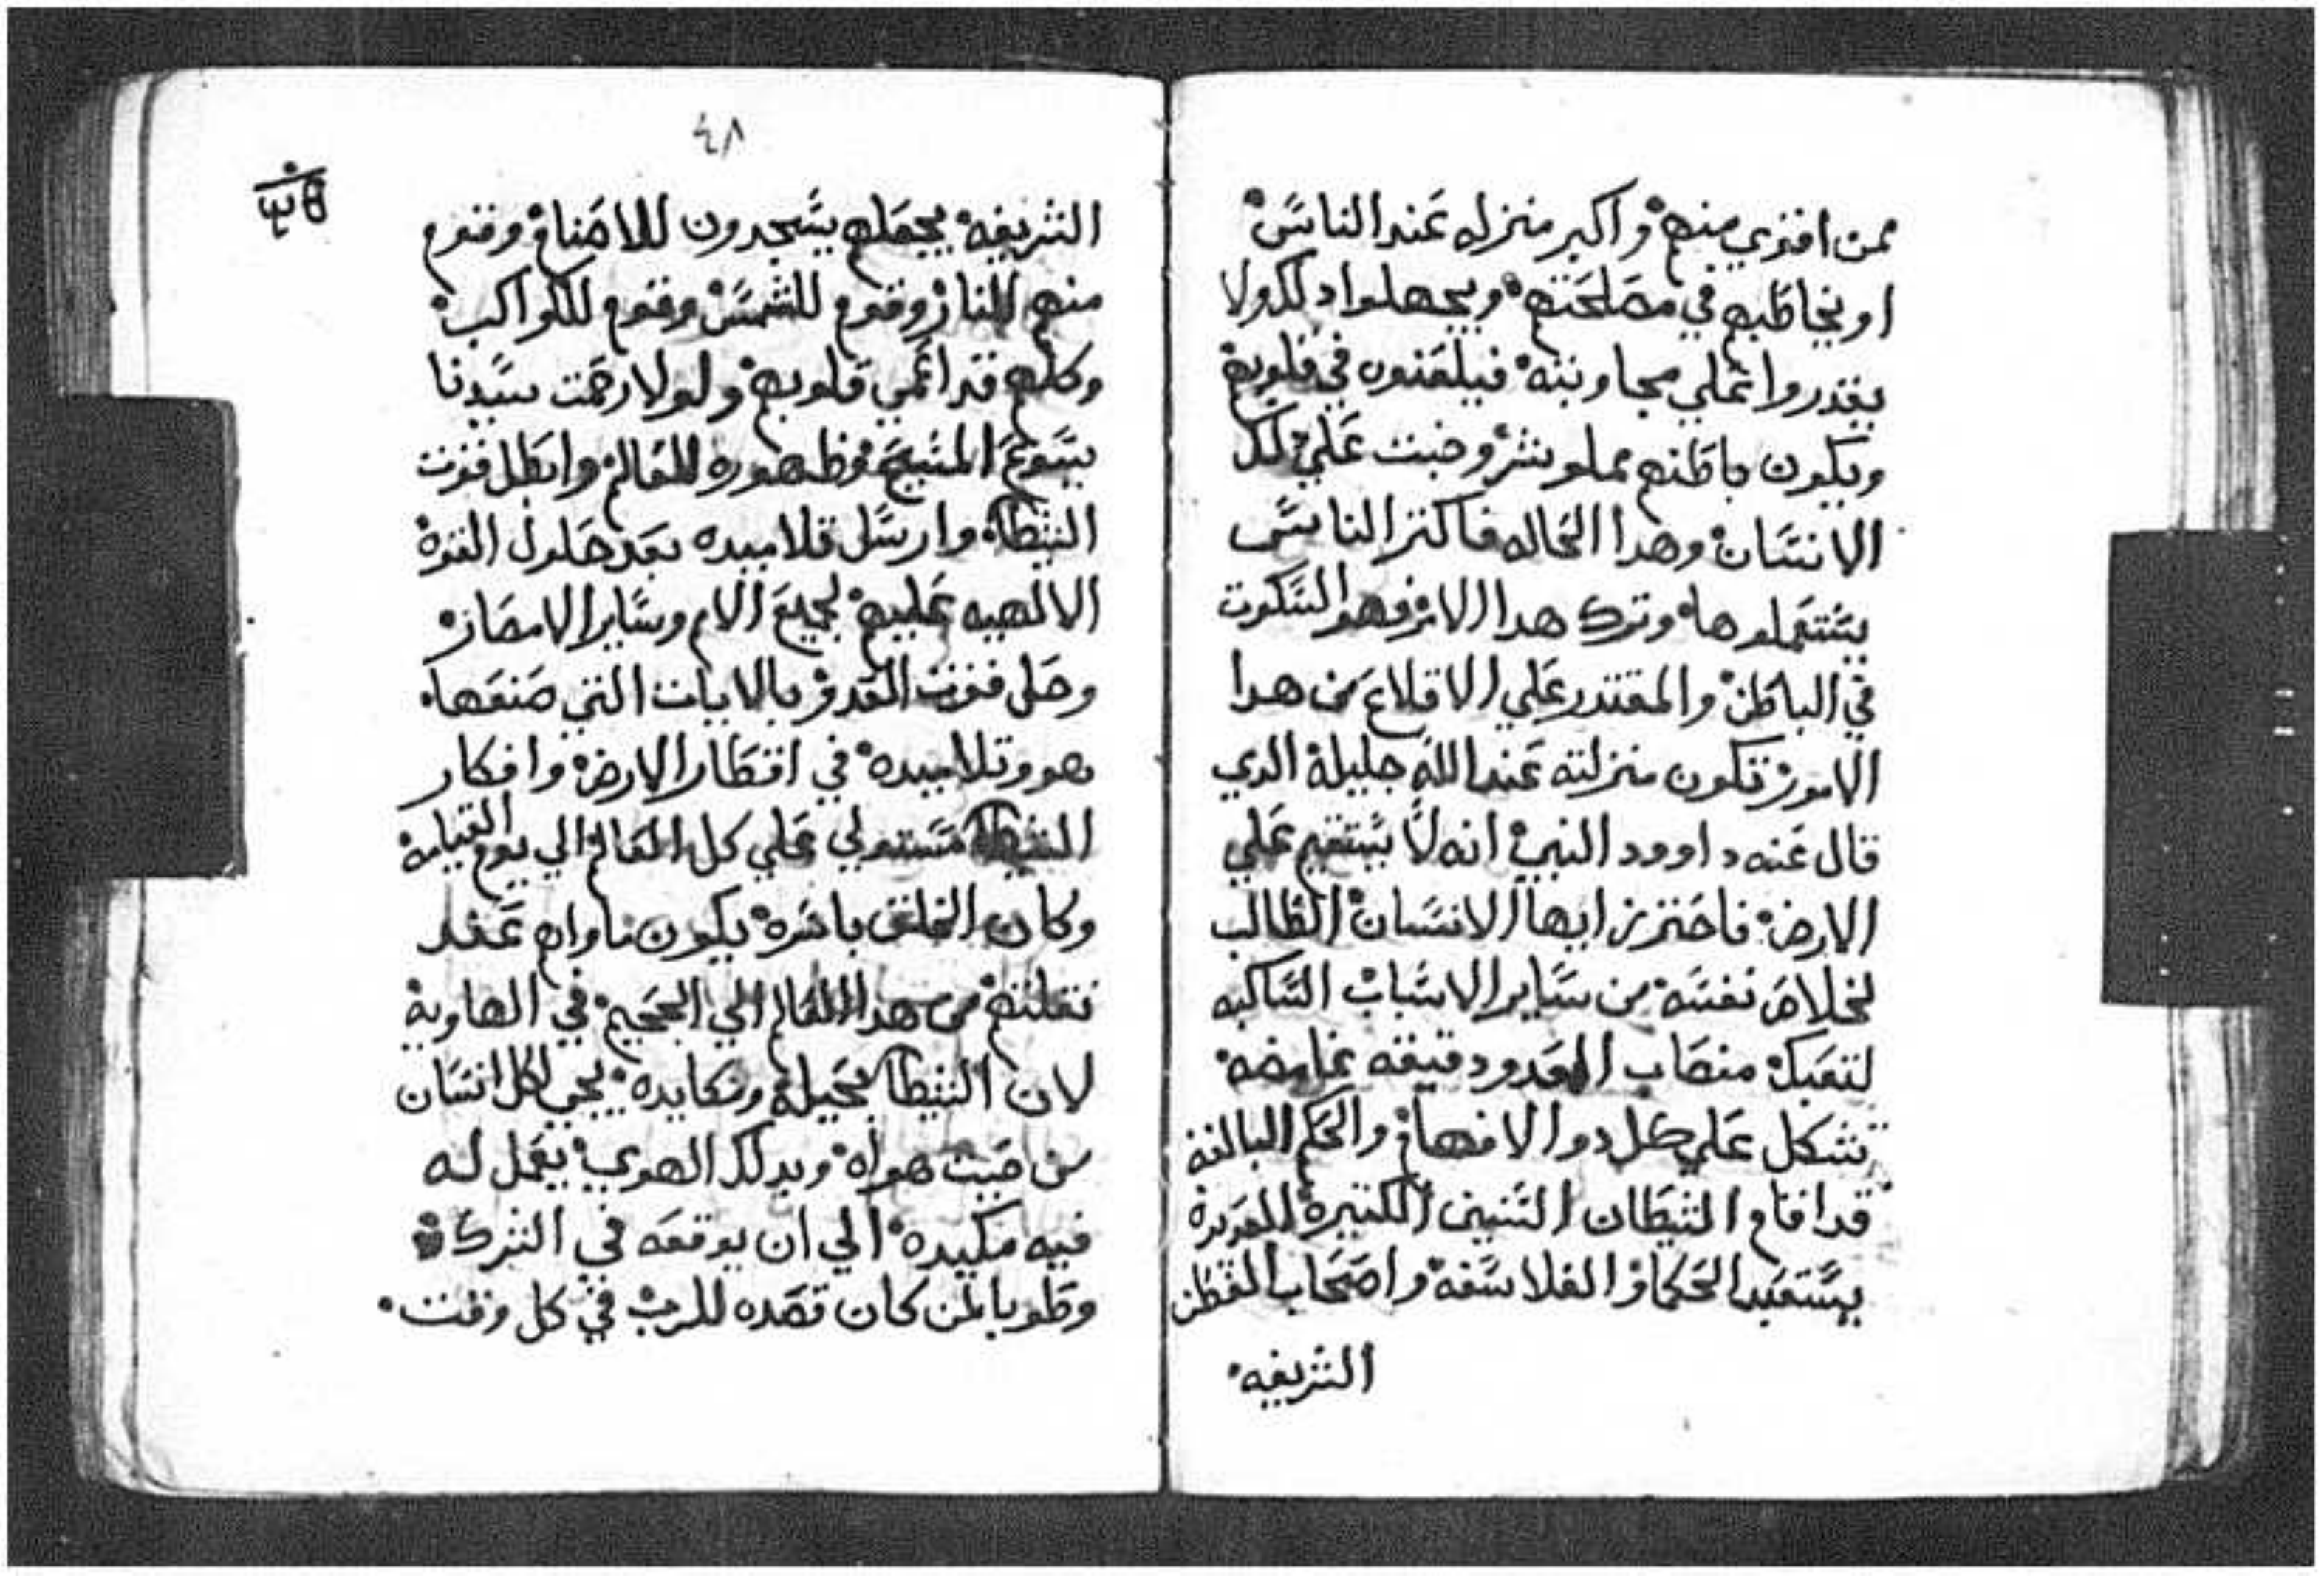 ممن اقوي منهم واكبر منزله عند الناس
او يخاطبهم في مصلحتهم ويجهلوا دلك ولا
يقدروا علي مجاوبته فيلعنوه في قلوبهم
ويكون باطنهم مملو شر وخبث علي دلك
الانسان وهدا الحاله فاكتر الناس
يستعملوها وترك هدا الامر فهو السكوت
في الباطن والمقتدر علي الاقلاع من هدا
الامور تكون منزلته عند الله جليله الدي
قال عنه داوود النبي انه لا يستقيم علي
الارض فاحترز ايها الانسان الطالب
لخلاص نفسه من ساير الاسباب الساكبه
لتعبك منصاب العدو دقيقه غامضه
تشكل علي كل دوا الافهام والحكم البالغه
قد اقام الشيطان السنين الكتيرة العديدة
يستعبد الحكما والفلاسفه واصحاب الفطن
الشريفه
٤٨
الشريفه يجعلهم يسجدون للاصنام وقوم
منهم للنار وقوم للشمس وقوم للكواكب
وكلهم قد اعمي قلوبهم ولولا رحمت سيدنا
يسوع المسيح وظهوره للعالم وابطل قوت
الشيطان وارسل تلاميده بعد حلول القوة
الالهيه عليهم لجميع الامم وساير الامصار
وحل قوت العدو بالايات التي صنعها
هو وتلاميده في اقطار الارض وافكار
الشيطان مستولي علي كل العالم الي يوم القيامه
وكان الخلق باسره يكون ماواهم عند
نقلتهم من هدا العالم الي الجحيم في الهاوية
لان الشيطان بحيله ومكايده يجي لكل انسان
من حيث هواه وبدلك الهوي يعمل له
فيه مكيده الي ان يوقعه في الشرك
وطوبا لمن كان قصده للرب في كل وقت